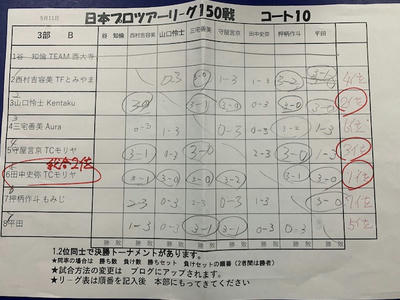 5月11日 日本プロツアーリーグ150戦 コート10
3部 B 谷 知倫 西村吉容美 山口怜士 三宅善美 守屋言京 田中史弥 押柄作斗 平田
1谷 知倫 TEAM 西大寺
2西村吉容美 TFとみやま 0-3 3-0 1-3 1-3 3-2 4位
3山口怜士 Kentaku 3-0 3-1 3-0 0-3 3-0 3-1 2位
4三宅善美 Aura 0-3 1-3 0-3 0-3 3-2 1-3 6位
5守屋言京 TCモリヤ 3-1 0-3 3-0 2-3 3-1 1-3 3位
総合2位
6田中史弥 TCモリヤ 3-1 3-0 3-0 3-2 3-0 3-0 1位
8押柄作斗 もみじ 2-3 0-3 2-3 1-3 0-3 3-0 7位
8平田 1-3 3-1 3-1 0-3 0-3 5位
勝 敗 勝 敗 勝 敗 勝 敗 勝 敗 勝 敗 勝 敗 勝 敗
1.2位同士で決勝トーナメントがあります。
★同率の場合は 勝ち数 負け数 勝ちセット 負けセットの順番(2者間は勝者)
★試合方法の変更は ブログにアップされます。
★リーグ表は順番を記入後 本部にもってきてください。